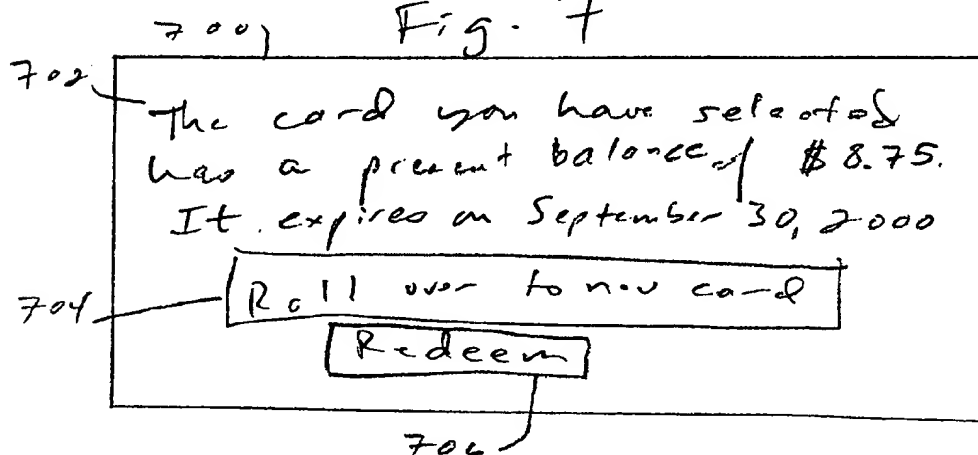 Fig. 7
700
702
The card you have selected
has a present balance of $8.75.
It expires on September 30, 2000
704
Roll over to new card
Redeem
706